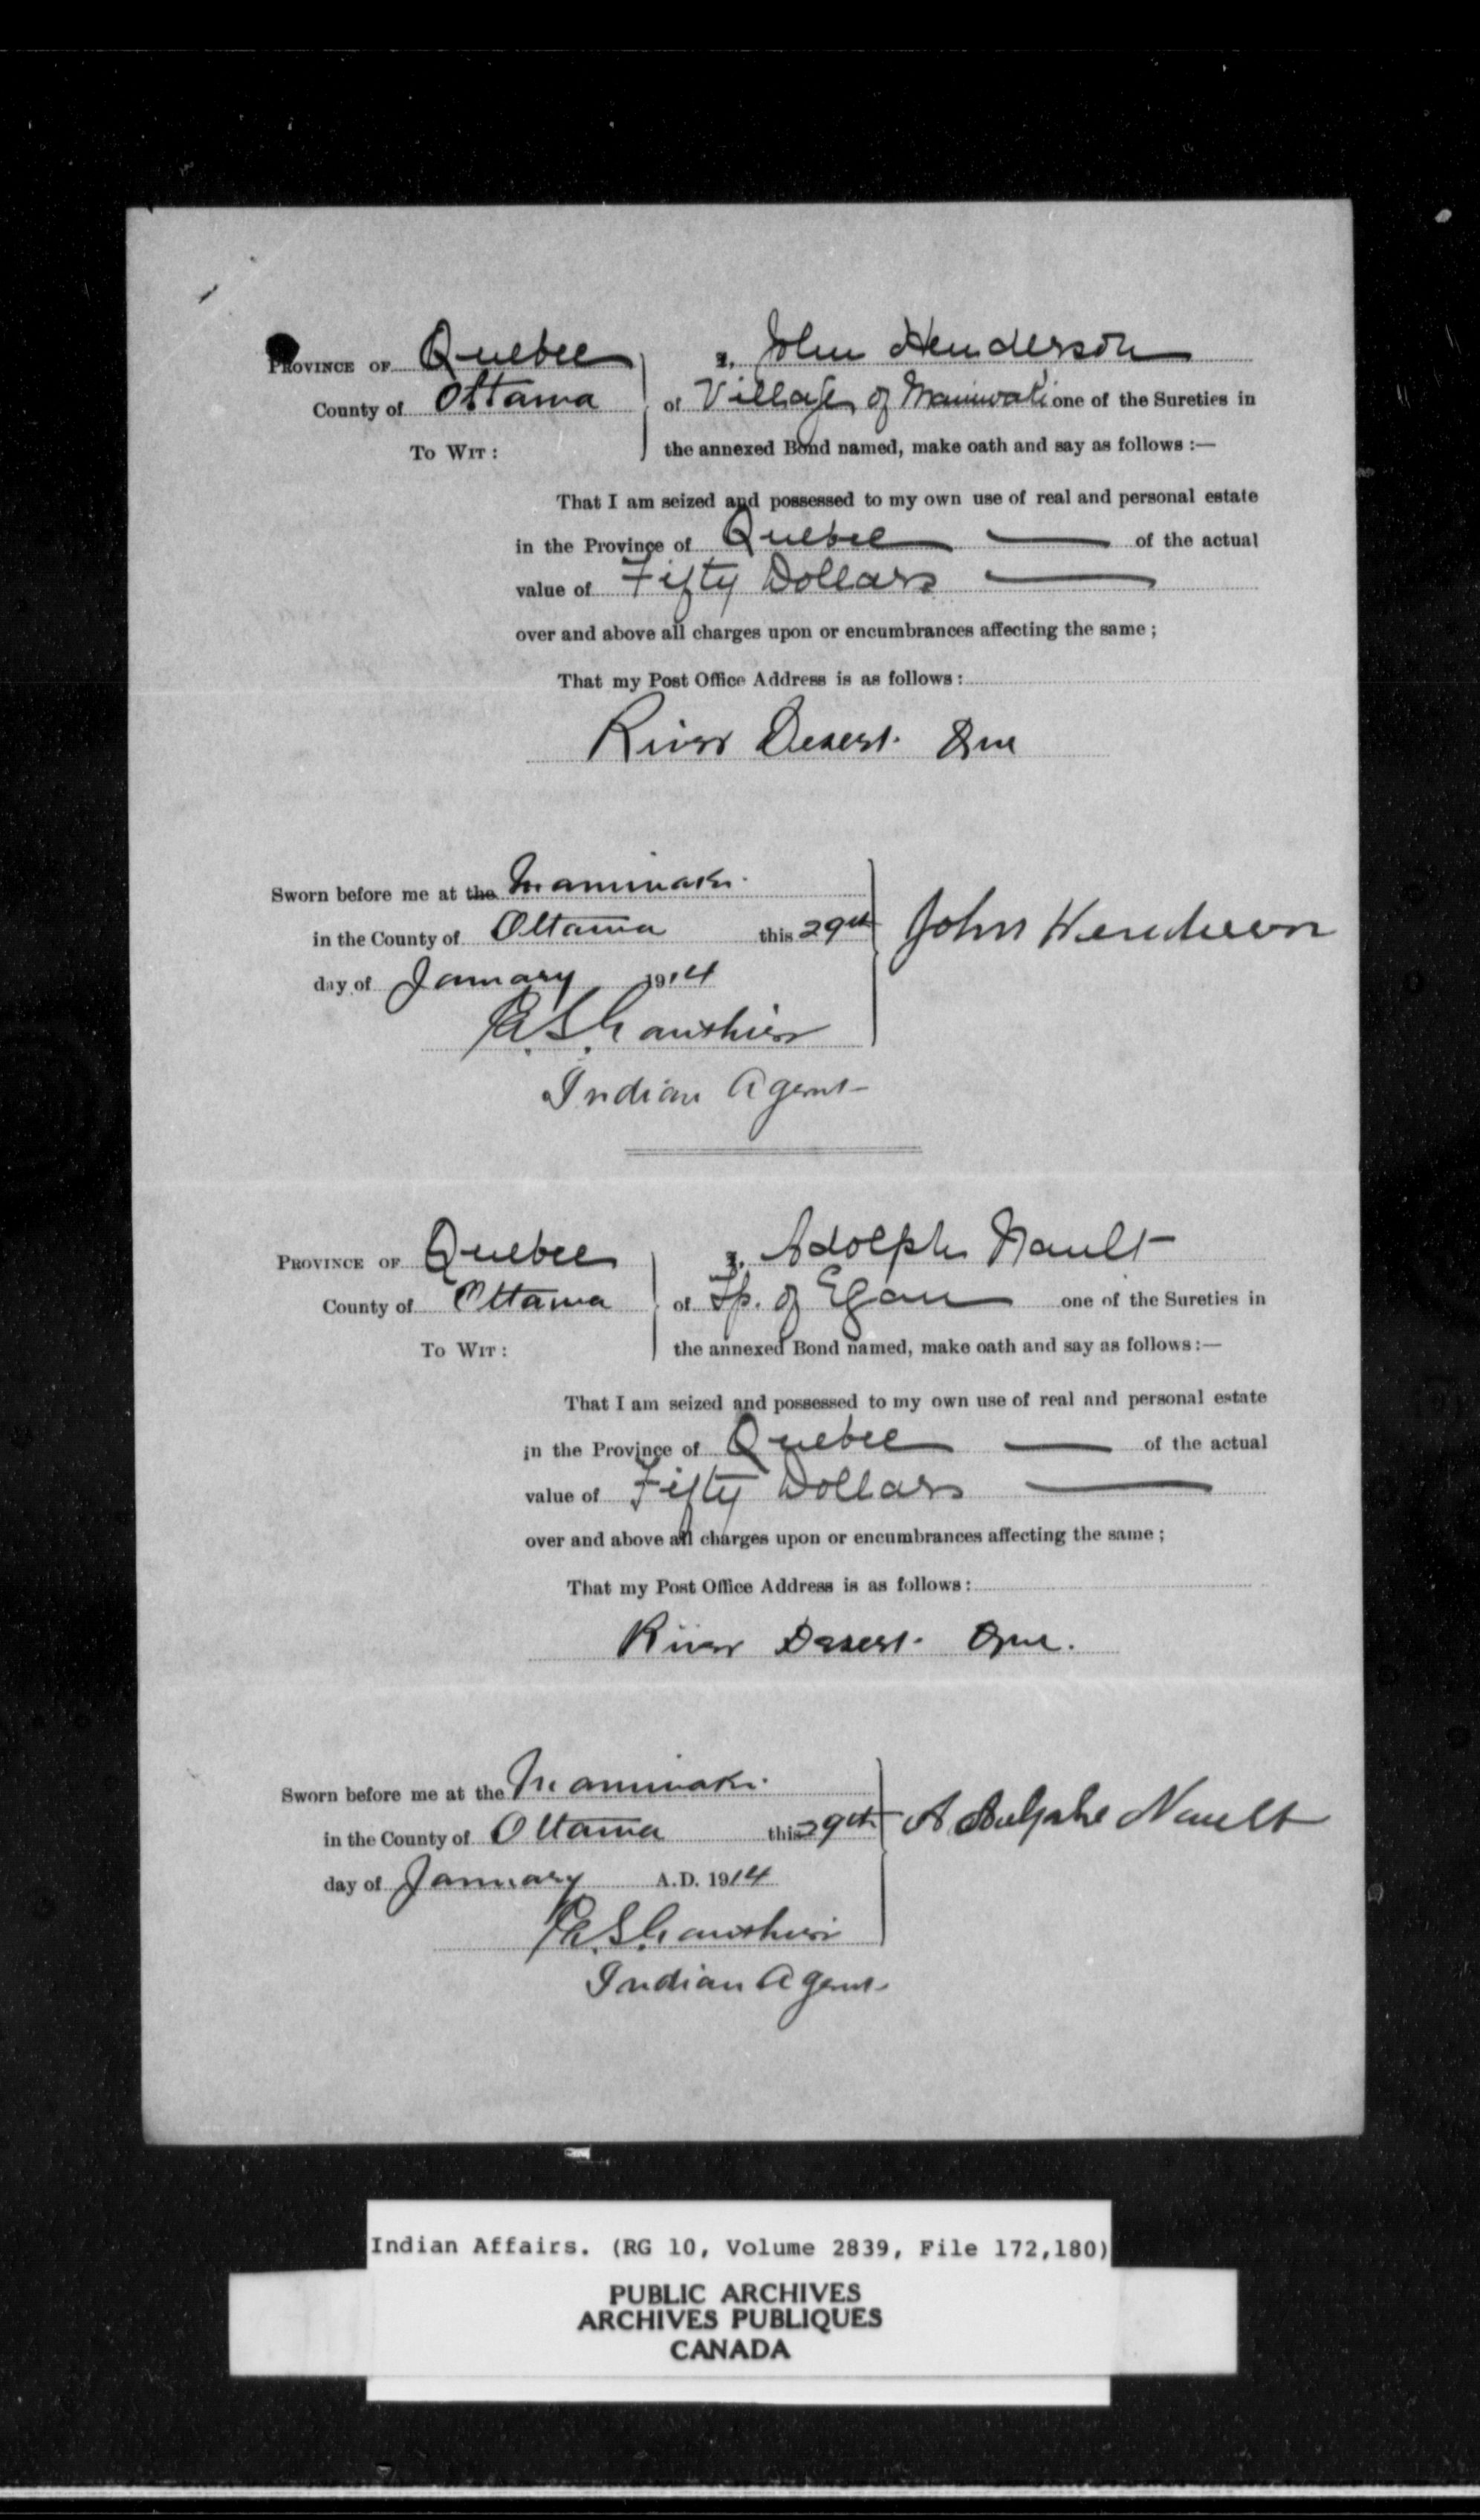 PROVINCE OF Quebec
County of Ottawa
TO WIT :
I, John Henderson
of Village of Maniwaki one of the Sureties in
the annexed Bond named, make oath and say as follows :—
That I am seized and possessed to my own use of real and personal estate
in the Province of Quebec — of the actual
value of Fifty Dollars —
over and above all charges upon or encumbrances affecting the same ;
That my Post Office Address is as follows :
River Desert. Que
Sworn before me at the Maniwaki.
in the County of Ottawa this 29th
day of January 1914
John Henderson
E.S. Gauthier
Indian Agent
PROVINCE OF Quebec
County of Ottawa
TO WIT :
I, Adolph Nault
of Tp. of Egan one of the Sureties in
the annexed Bond named, make oath and say as follows :—
That I am seized and possessed to my own use of real and personal estate
in the Province of Quebec — of the actual
value of Fifty Dollars —
over and above all charges upon or encumbrances affecting the same ;
That my Post Office Address is as follows :
River Desert. Que.
Sworn before me at the Maniwaki.
in the County of Ottawa this 29th
day of January A.D. 1914
Nault
E.S. Gauthier
Indian Agent
Indian Affairs. (RG 10, Volume 2839, File 172,180)
PUBLIC ARCHIVES
ARCHIVES PUBLIQUES
CANADA